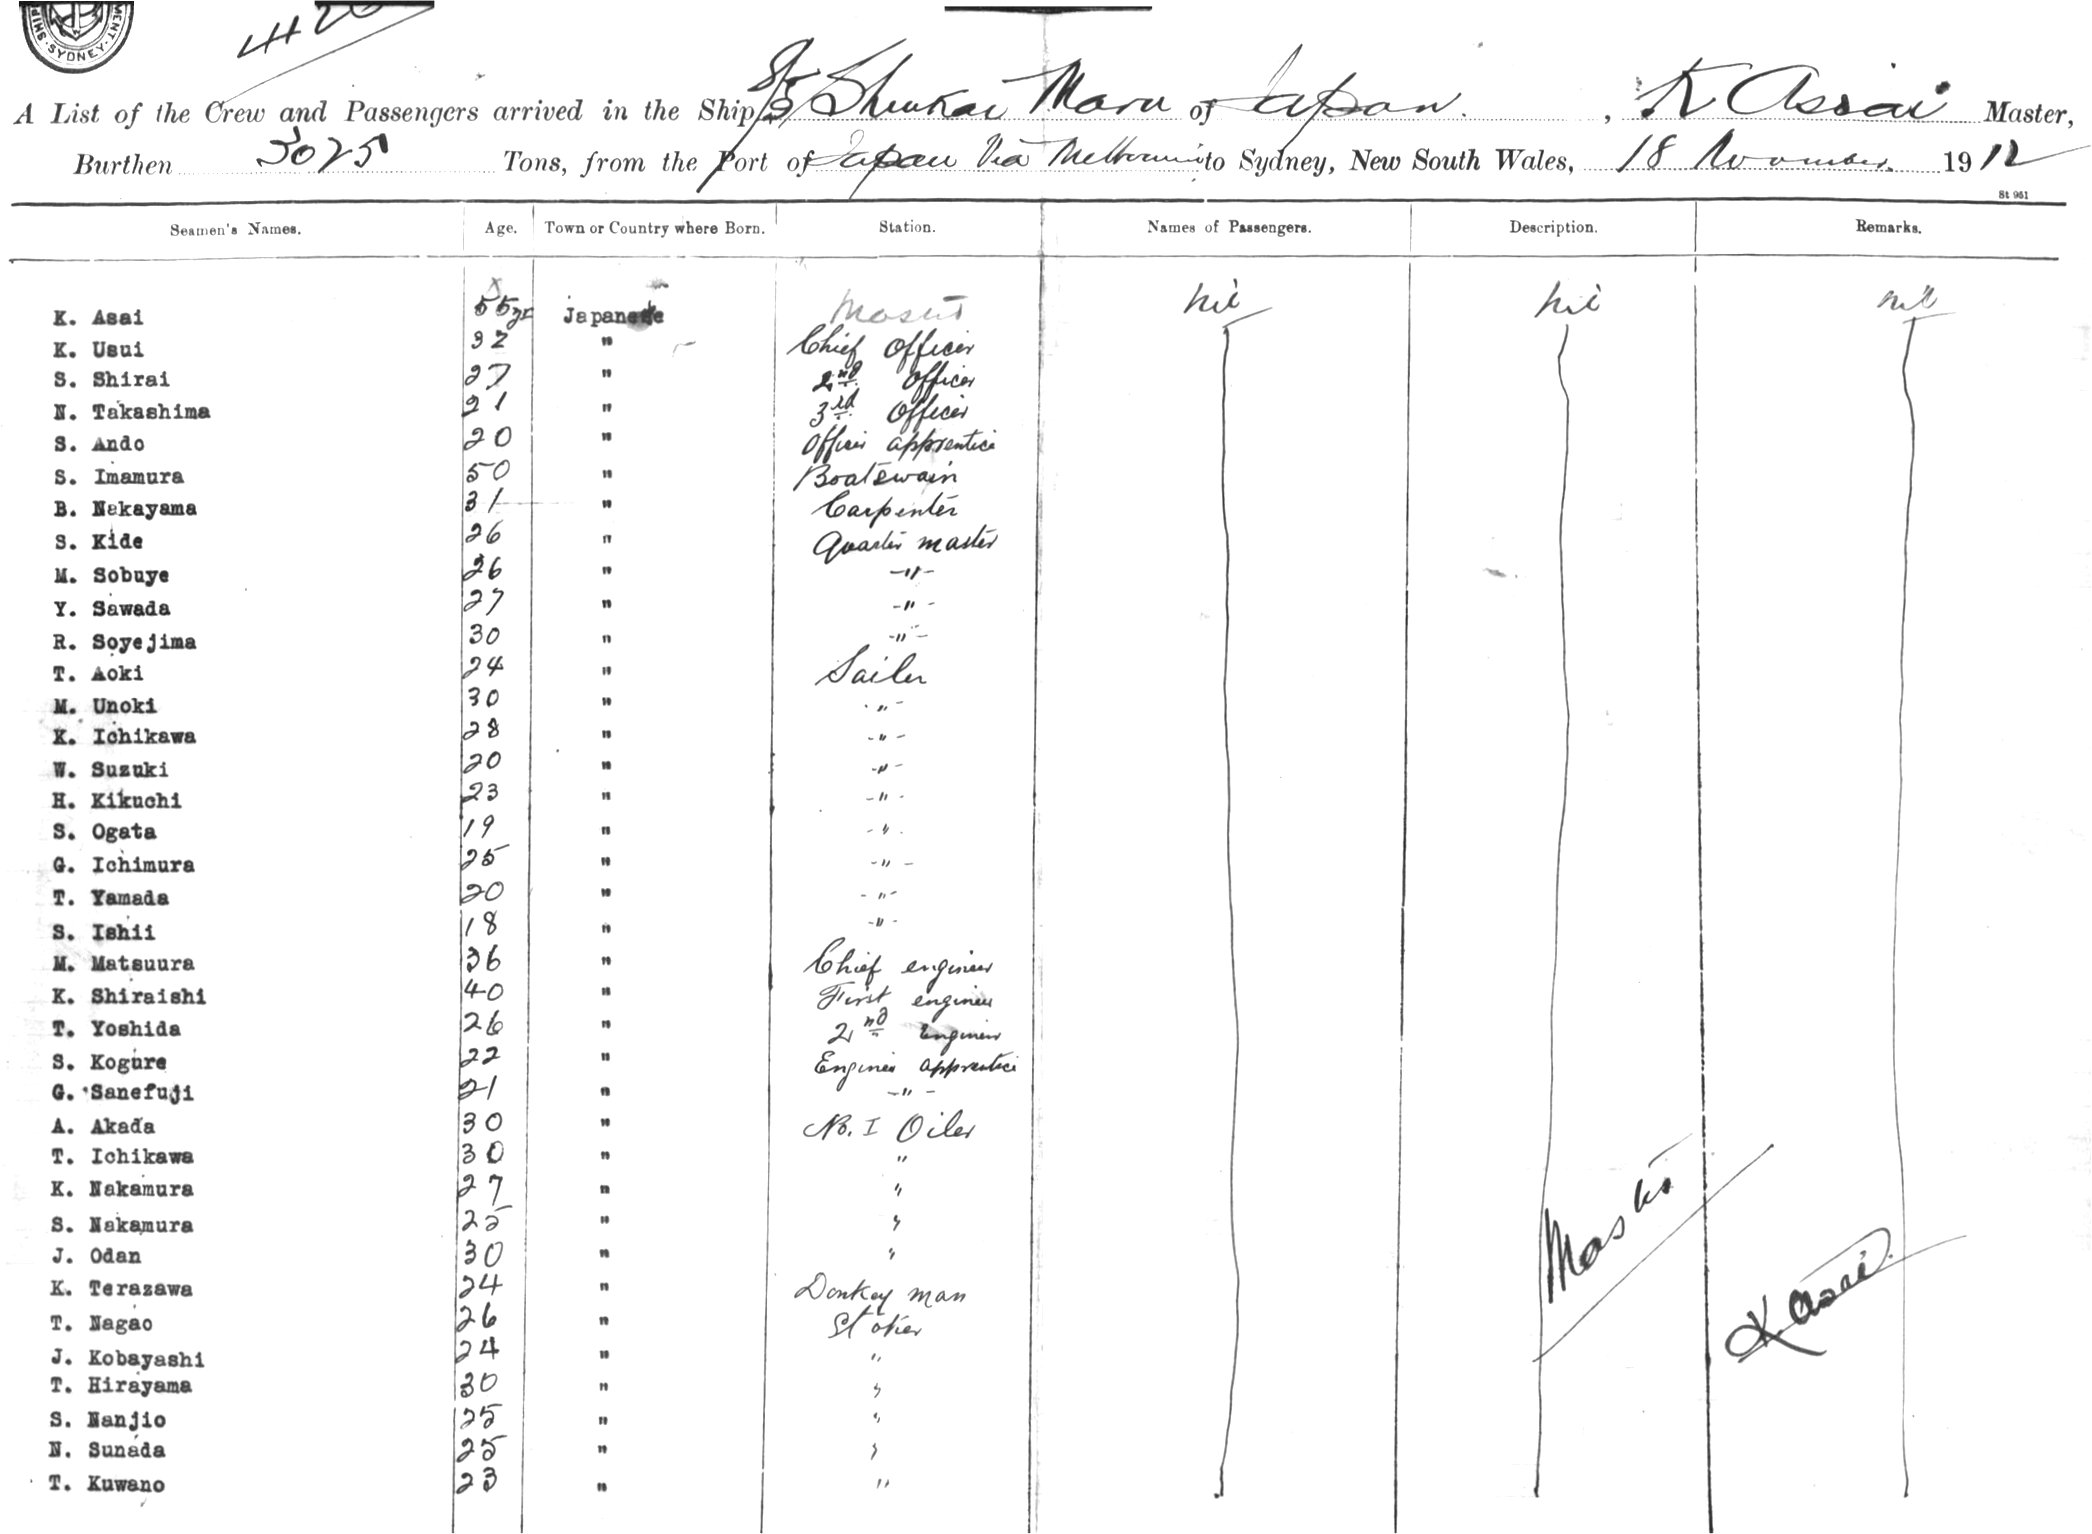 SYDNEY
A List of the Crew and Passengers arrived in the Ship S/S Shinkai Maru of Japan. , K Asai Master,
Burthen 3025 Tons, from the Port of Japan Via Melbourne to Sydney, New South Wales, 18 November 1912
St 961
Seamen's Names. Age. Town or Country where Born. Station. Names of Passengers. Description. Remarks.
K. Asai 55 yr Japanese Master nil nil nil
K. Usui 32 " Chief Officer
S. Shirai 27 " 2nd Officer
N. Takashima 21 " 3rd Officer
S. Ando 20 " Officer apprentice
S. Imamura 50 " Boatswain
B. Nakayama 31 " Carpenter
S. Kide 26 " Quarter master
M. Sobuye 26 " -"-
Y. Sawada 27 " -"-
R. Soyejima 30 " -"-
T. Aoki 24 " Sailer
M. Unoki 30 " -"-
K. Ichikawa 28 " -"-
W. Suzuki 20 " -"-
H. Kikuchi 23 " -"-
S. Ogata 19 " -"-
G. Ichimura 25 " -"-
T. Yamada 20 " -"-
S. Ishii 18 " -"-
M. Matsuura 36 " Chief engineer
K. Shiraishi 40 " First engineer
T. Yoshida 26 " 2nd Engineer
S. Kogure 22 " Engineer apprentice
G. Sanefuji 21 " -"-
A. Akada 30 " No. I Oiler
T. Ichikawa 30 " "
K. Nakamura 27 " "
S. Nakamura 25 " "
J. Odan 30 " "
K. Terazawa 24 " Donkey man
T. Nagao 26 " Stoker
J. Kobayashi 24 " "
T. Hirayama 30 " "
S. Nanjio 25 " "
N. Sunada 25 " "
T. Kuwano 23 " "
Master
K Asai